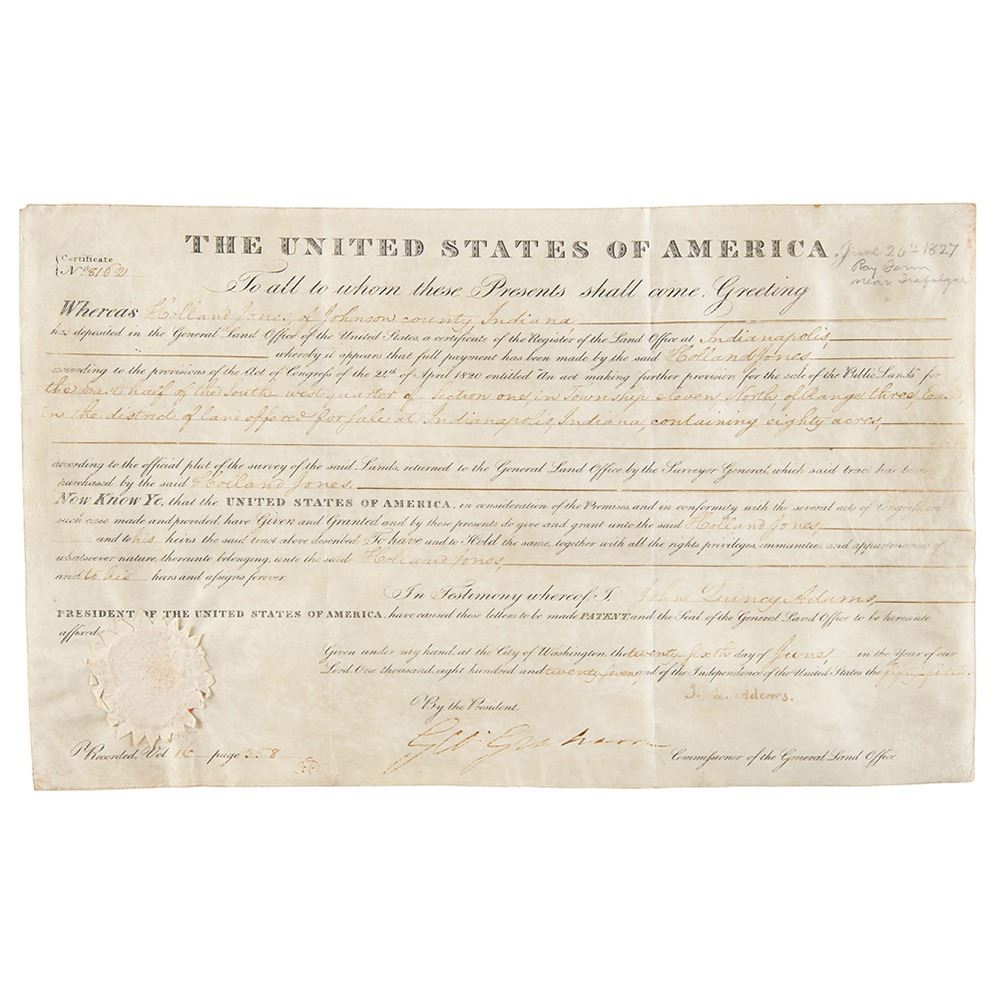 THE UNITED STATES OF AMERICA.
June 26th 1827
Ray Farm
near Trafalgar
Certificate
No.
To all to whom these Presents shall come, Greeting
Whereas Holland Jones, of Johnson county, Indiana
has deposited in the General Land Office of the United States, a certificate of the Register of the Land Office at Indianapolis,
whereby it appears that full payment has been made by the said Holland Jones,
according to the provisions of the Act of Congress of the 24th of April 1820 entitled "An act making further provision for the sale of the Public Lands" for
the East half of the South west quarter of Section one, in Township eleven, North, of Range three, East,
in the district of land offered for sale at Indianapolis, Indiana, containing eighty acres,
according to the official plat of the survey of the said Lands, returned to the General Land Office by the Surveyor General, which said tract has been
purchased by the said Holland Jones.
Now Know Ye, that the UNITED STATES OF AMERICA, in consideration of the Premises, and in conformity with the several acts of Congress, in
such case made and provided have Given and Granted and by these presents do give and grant unto the said Holland Jones,
and to his heirs the said tract above described. To have and to Hold the same, together with all the rights, privileges, immunities, and appurtenances of
whatsoever nature, thereunto belonging, unto the said Holland Jones,
and to his heirs and assigns forever.
In Testimony whereof, I, John Quincy Adams,
PRESIDENT OF THE UNITED STATES OF AMERICA, have caused these letters to be made PATENT, and the Seal of the General Land Office to be hereunto
affixed.
Given under my hand, at the City of Washington, the twenty sixth day of June in the Year of our
Lord One thousand, eight hundred and twenty seven, and of the Independence of the United States the fifty-first.
J. Q. Adams.
By the President.
Geo: Graham
Commissioner of the General Land Office
Recorded, Vol page 358